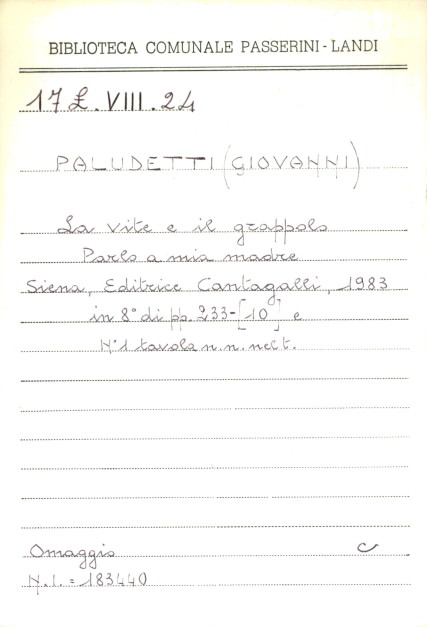 BIBLIOTECA COMUNALE PASSERINI - LANDI
17 £. VIII. 24
PALUDETTI (GIOVANNI)
La vite e il grappolo
Parlo a mia madre
Siena, Editrice Cantagalli, 1983
in 8° di pp. 233-[10] e
N° 1 tavola n.n. nel t.
Omaggio C
N.I. = 183440